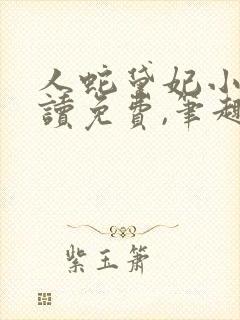 人蛇黛妃小
讀免費,筆趣
紫玉簫